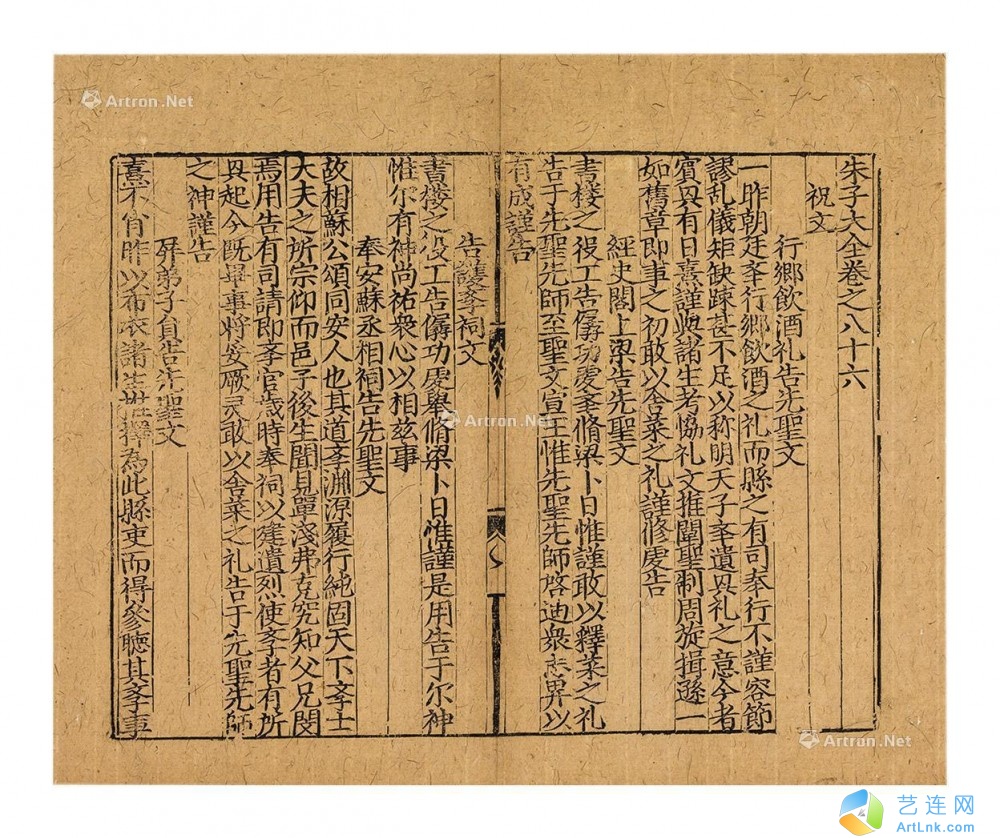 朱子大全卷之八十六
祝文
行鄉飲酒礼告先聖文
一昨朝廷举行鄉飲酒之礼而縣之有司奉行不謹容節
謬乱儀矩缺踈甚不足以称明天子举遺㒷礼之意今者
賓㒷有日熹謹與諸生考協礼文推闡聖制周旋揖遜一
如舊章即事之初敢以舍菜之礼謹修虔告
經史閣上梁告先聖文
書楼之役工告僝功虔举脩梁卜日惟謹敢以釋菜之礼
告于先聖先師至聖文宣王惟先聖先師啓迪衆志畀以
有成謹告
告護斈祠文
書楼之役工告僝功虔舉脩梁卜日惟謹是用告于尔神
惟尔有神尚祐衆心以相兹事
奉安蘇丞相祠告先聖文
故相蘇公頌同安人也其道斈渊源履行純固天下斈士
大夫之所宗仰而邑子後生聞見單淺弗克究知父兄閔
焉用告有司請即斈官歲時奉祠以建遺烈使斈者有所
㒷起今既畢事将妥厥灵敢以舍菜之礼告于先聖先師
之神謹告
屏弟子員告先聖文
熹不肖昨以布衣諸生推擇為此縣吏而得參聴其斈事
Artron.Net
Artron.Net
Artron.Net
艺连网
ArtLnk.com